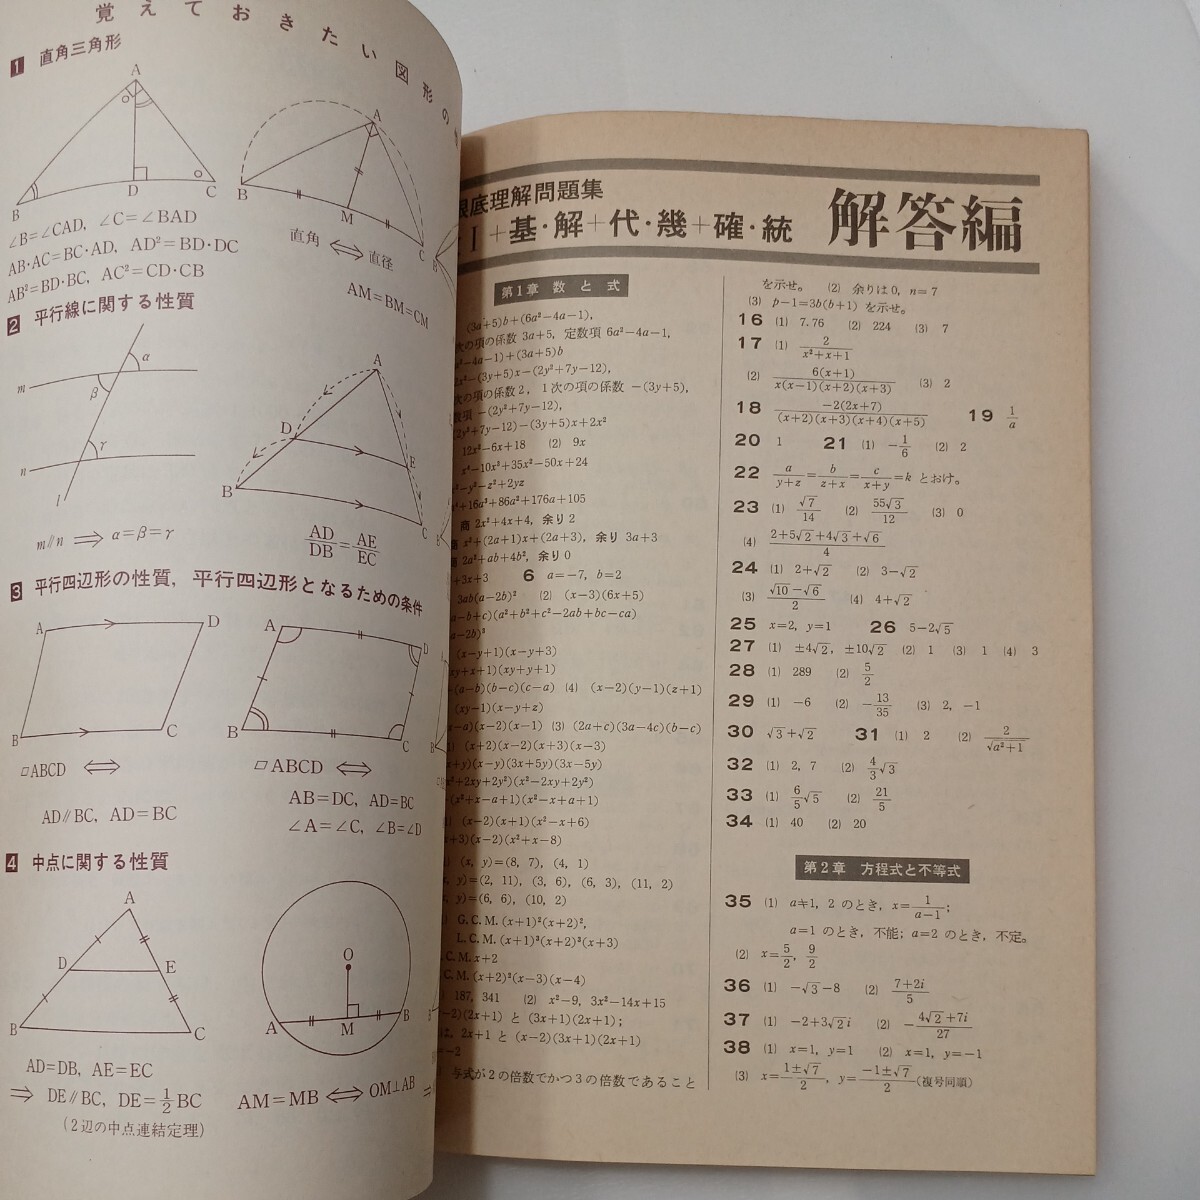 覚えておきたい図形の
1 直角三角形
A
B
D
C
A
B
M
C
∠B=∠CAD, ∠C=∠BAD
AB·AC=BC·AD, AD²=BD·DC
AB²=BD·BC, AC²=CD·CB
直角 ⟺ 直径
AM=BM=CM
2 平行線に関する性質
m
n
l
α
β
γ
A
D
E
B
C
m∥n ⟹ α=β=γ
AD/DB=AE/EC
3 平行四辺形の性質, 平行四辺形となるための条件
A
D
B
C
A
D
B
C
▱ABCD ⟺
▱ABCD ⟺
AD∥BC, AD=BC
AB=DC, AD=BC
∠A=∠C, ∠B=∠D
4 中点に関する性質
A
D
E
B
C
O
A
M
B
AD=DB, AE=EC
⟹ DE∥BC, DE=1/2 BC
(2辺の中点連結定理)
AM=MB ⟺ OM⊥AB
底理解問題集
I+基·解+代·幾+確·統
解答編
第1章 数と式
(3a+5)b+(6a²-4a-1),
次の項の係数 3a+5, 定数項 6a²-4a-1,
-4a-1)+(3a+5)b
-(3y+5)x-(2y²+7y-12),
次の項の係数2, 1次の項の係数 -(3y+5),
数項 -(2y²+7y-12),
(2y²+7y-12)-(3y+5)x+2x²
12x²-6x+18 (2) 9x
x⁴-10x³+35x²-50x+24
-y²-z²+2yz
+16a³+86a²+176a+105
商 2x²+4x+4, 余り 2
商 x²+(2a+1)x+(2a+3), 余り 3a+3
商 2a²+ab+4b², 余り 0
+3x+3 6 a=-7, b=2
3ab(a-2b)² (2) (x-3)(6x+5)
a-b+c)(a²+b²+c²-2ab+bc-ca)
a-2b)³
(x-y+1)(x-y+3)
xy+x+1)(xy+y+1)
-(a-b)(b-c)(c-a) (4) (x-2)(y-1)(z+1)
(xy-1)(x-y+z)
x-a)(x-2)(x-1) (3) (2a+c)(3a-4c)(b-c)
(x+2)(x-2)(x+3)(x-3)
x+y)(x-y)(3x+5y)(3x-5y)
x²+2xy+2y²)(x²-2xy+2y²)
(x²+x-a+1)(x²-x+a+1)
(x-2)(x+1)(x²-x+6)
+3)(x-2)(x²+x-8)
(x, y)=(8, 7), (4, 1)
y)=(2, 11), (3, 6), (6, 3), (11, 2)
y)=(6, 6), (10, 2)
G.C.M. (x+1)²(x+2)²,
L.C.M. (x+1)³(x+2)³(x+3)
C.M. x+2
C.M. (x+2)²(x-3)(x-4)
187, 341 (2) x²-9, 3x²-14x+15
-2)(2x+1) と (3x+1)(2x+1);
2, 2x+1 と (x-2)(3x+1)(2x+1)
=-2
与式が2の倍数でかつ3の倍数であること
を示せ。 (2) 余りは0, n=7
(3) p-1=3b(b+1) を示せ。
16 (1) 7.76 (2) 224 (3) 7
17 (1) 2/(x²+x+1)
(2) 6(x+1)/(x(x-1)(x+2)(x+3)) (3) 2
18 -2(2x+7)/((x+2)(x+3)(x+4)(x+5)) 19 1/a
20 1 21 (1) -1/6 (2) 2
22 a/(y+z)=b/(z+x)=c/(x+y)=k とおけ。
23 (1) √7/14 (2) 55√3/12 (3) 0
(4) (2+5√2+4√3+√6)/4
24 (1) 2+√2 (2) 3-√2
(3) (√10-√6)/2 (4) 4+√2
25 x=2, y=1 26 5-2√5
27 (1) ±4√2, ±10√2 (2) 1 (3) 1 (4) 3
28 (1) 289 (2) 5/2
29 (1) -6 (2) -13/35 (3) 2, -1
30 √3+√2 31 (1) 2 (2) 2/√(a²+1)
32 (1) 2, 7 (2) 4/3√3
33 (1) 6/5√5 (2) 21/5
34 (1) 40 (2) 20
第2章 方程式と不等式
35 (1) a≠1, 2 のとき, x=1/(a-1);
a=1 のとき, 不能; a=2 のとき, 不定。
(2) x=5/2, 9/2
36 (1) -√3-8 (2) (7+2i)/5
37 (1) -2+3√2i (2) -(4√2+7i)/27
38 (1) x=1, y=1 (2) x=1, y=-1
(3) x=(1±√7)/2, y=(-1±√7)/2 (複号同順)